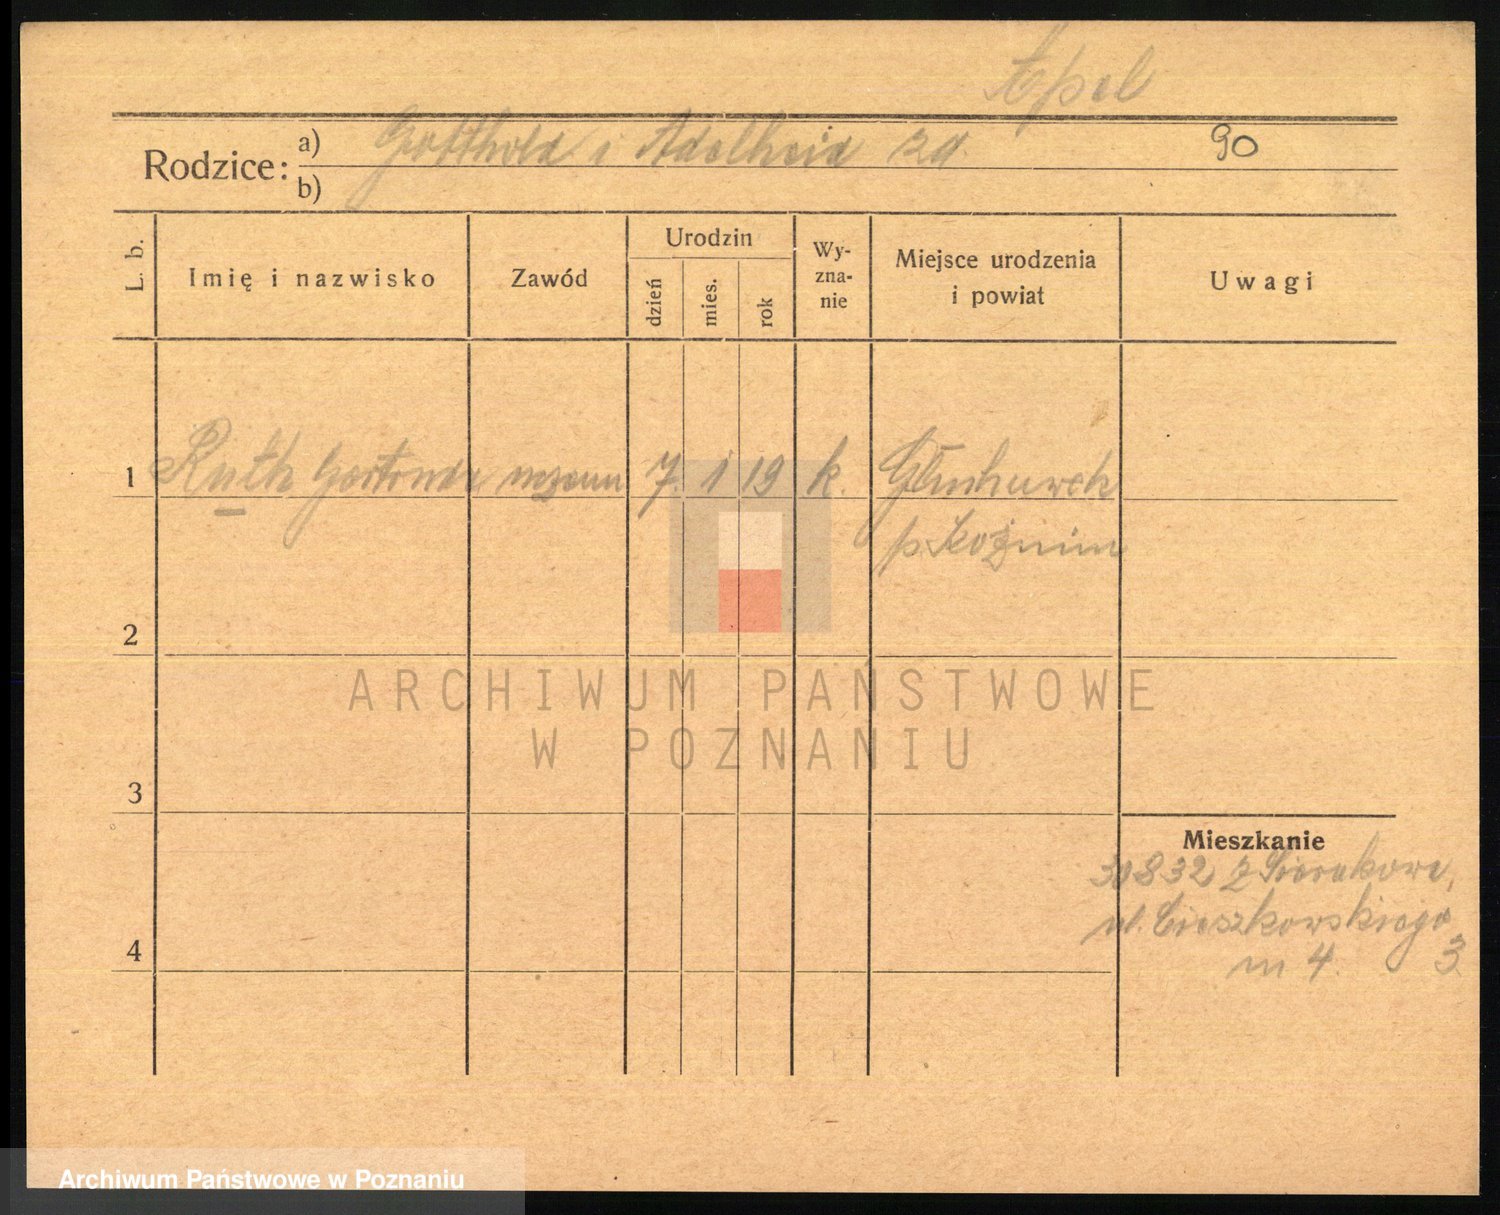 Apel
Rodzice: a) Gotthold i Adelheid zd 90
b)
L. b. Imię i nazwisko Zawód Urodzin dzień mies. rok Wy-zna-nie Miejsce urodzenia i powiat Uwagi
1 Ruth Gertruda 7. 1 19 k.
p. Koźmin
2
ARCHIWUM PAŃSTWOWE
W POZNANIU
3
Mieszkanie
30 8 32 z Sierakowa,
ul. Cieszkowskiego
4 m 4. 3
Archiwum Państwowe w Poznaniu